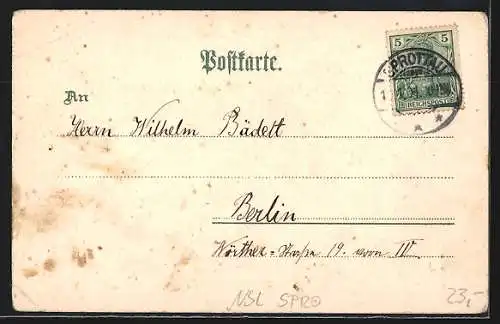 5 5
SPROTTAU
REICHSPOST
Postkarte.
An
Herrn Wilhelm Bädelt
Berlin
Wörther-Straße 19. vorn IV
NSL SPRO
23,-